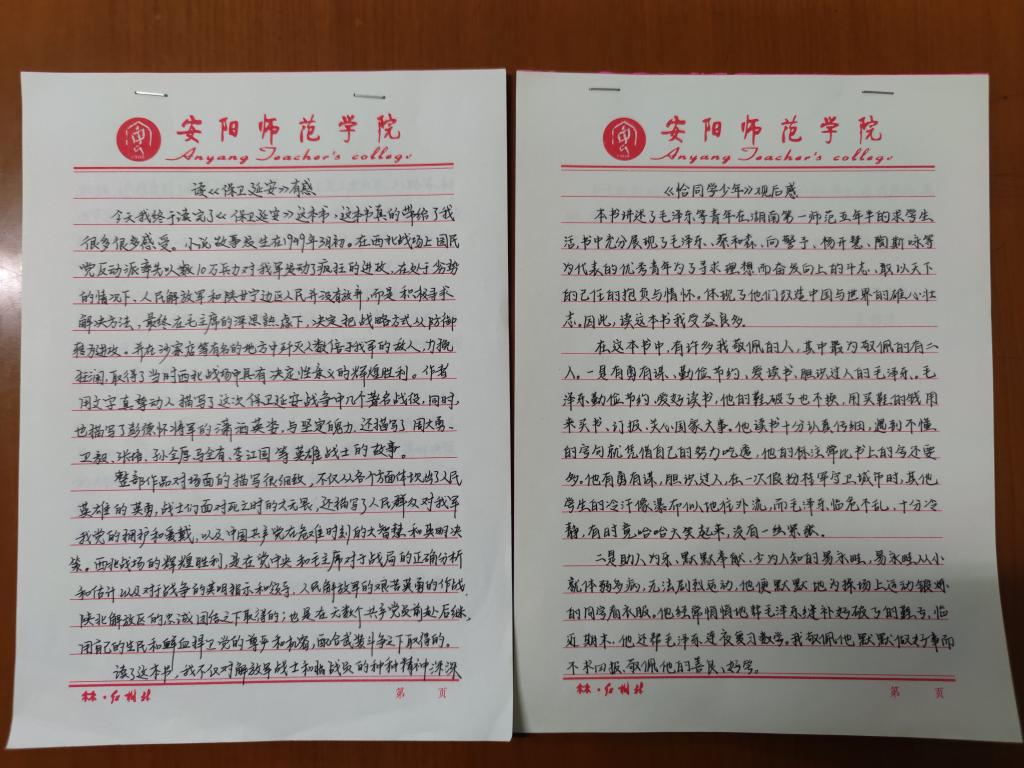 安阳师范学院
Anyang Teacher's college
读《保卫延安》有感
今天我终于读完了《保卫延安》这本书,这本书真的带给了我
很多很多感受。小说故事发生在1949年3月初。在西北战场上国民
党反动派率先以数10万兵力对我军发动了疯狂的进攻,在处于劣势
的情况下,人民解放军和陕甘宁边区人民并没有放弃,而是积极寻求
解决方法,最终在毛主席的深思熟虑下,决定把战略方式从防御
转为进攻。并在沙家店等有名的地方中歼灭人数倍于我军的敌人,力挽
狂澜,取得了当时西北战场中具有决定性意义的辉煌胜利。作者
用文字真挚动人描写了这次保卫延安战争中几个著名战役,同时,
也描写了彭德怀将军的潇洒英姿,与坚定魄力,还描写了周大勇、
卫毅、张培、孙全厚、马全有、李江国等英雄战士的故事。
整部作品对场面的描写很细致,不仅从各个方面体现出了人民
英雄的英勇,战士们面对死亡时的大无畏,还描写了人民群众对我军
我党的拥护和爱戴,以及中国共产党在危难时刻的大智慧和英明决
策。西北战场的辉煌胜利,是在党中央和毛主席对于战局的正确分析
和估计以及对于战争的英明指示和领导,人民解放军的艰苦英勇的作战,
陕北解放区的忠诚团结之下取得的;也是在无数个共产党员前赴后继,
用自己的生民和鲜血捍卫党的尊严和利益,配合武装斗争之下取得的。
读了这本书,我不仅对解放军战士和指战员的种种精神深深
林·红树北
第 页
安阳师范学院
Anyang Teacher's college
《恰同学少年》观后感
本书讲述了毛泽东等青年在湖南第一师范五年半的求学生
活,书中充分展现了毛泽东、蔡和森、向警予、杨开慧、陶斯咏等
为代表的优秀青年为了寻求理想而奋发向上的斗志、敢以天下
为己任的抱负与情怀。体现了他们改造中国与世界的雄心壮
志。因此,读这本书我受益良多。
在这本书中,有许多我敬佩的人,其中最为敬佩的有二
人。一是有勇有谋、勤俭节约、爱读书、胆识过人的毛泽东。毛
泽东勤俭节约、爱好读书,他的鞋破了也不换,用买鞋的钱用
来买书、订报、关心国家大事。他读书十分认真仔细,遇到不懂
的字句就凭借自己的努力吃透,他的标注带比书上的字还要
多。他有勇有谋,胆识过人,在一次假扮将军守卫城市时,其他
学生的冷汗像瀑布似地往外流,而毛泽东临危不乱,十分冷
静,有时竟哈哈大笑起来,没有一丝紧张。
二是助人为乐,默默奉献,少为人知的易永畦,易永畦从小
就体弱多病,无法剧烈运动,他便默默地为操场上运动锻炼
的同学看衣服。他经常悄悄地帮毛泽东缝补好破了的鞋子,临
近期末,他还帮毛泽东连夜复习数学。我敬佩他默默做好事而
不求回报、敬佩他的善良、好学。
林·红树北
第 页